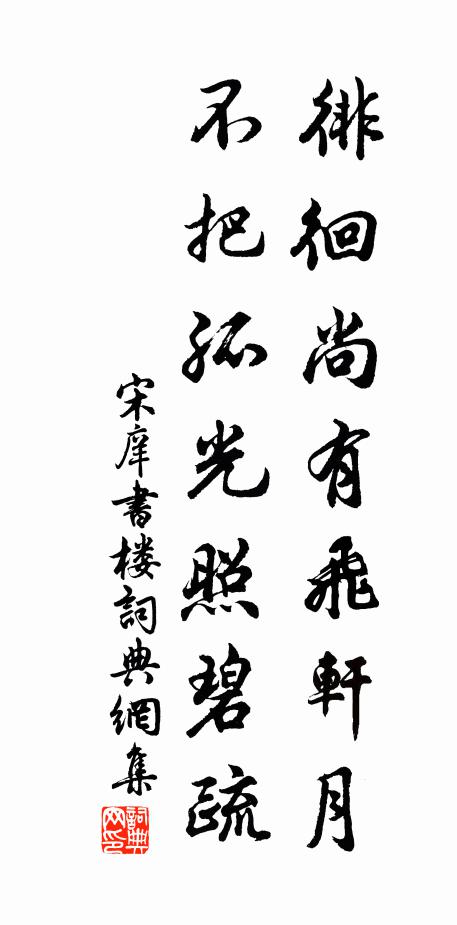 徘徊尚有飛軒月
不把孤光照碧疏
宋庠書楼詞典網集
詞典网印